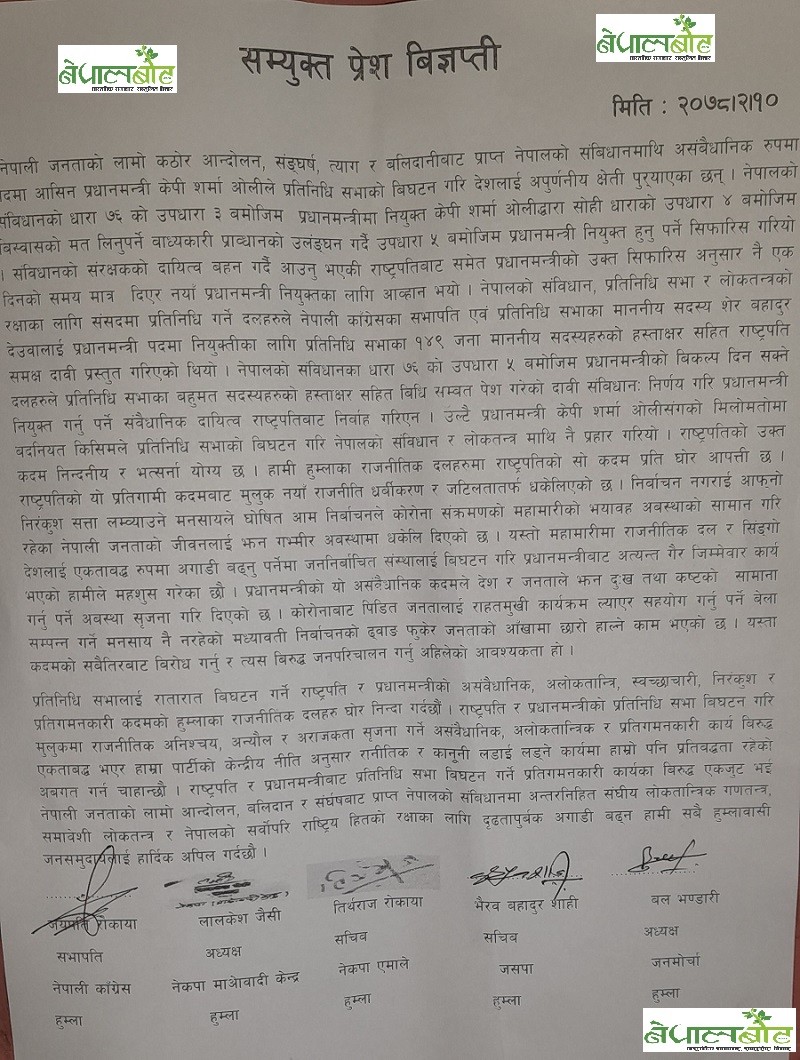 नेपालबोट
नेपालबोट
सम्युक्त प्रेश बिज्ञप्ती
मिति : २०७८।२।१०
नेपाली जनताको लामो कठोर आन्दोलन, संङघर्ष, त्याग र बलिदानीवाट प्राप्त नेपालको संबिधानमाथि असंबैधानिक रुपमा
पदमा आसिन प्रधानमन्त्री केपी शर्मा ओलीले प्रतिनिधि सभाको बिघटन गरि देशलाई अपुर्णनीय क्षेती पुर्‍याएका छन् । नेपालको
संविधानको धारा ७६ को उपधारा ३ बमोजिम प्रधानमन्त्रीमा नियुक्त केपी शर्मा ओलीद्धारा सोही धाराको उपधारा ४ बमोजिम
बिस्वासको मत लिनुपर्ने वाध्यकारी प्राव्धानको उलंङ्घन गर्दै उपधारा ५ बमोजिम प्रधानमन्त्री नियुक्त हुनु पर्ने सिफारिस गरियो
। संविधानको संरक्षकको दायित्व बहन गर्दै आउनु भएकी राष्ट्रपतिबाट समेत प्रधानमन्त्रीको उक्त सिफारिस अनुसार नै एक
दिनको समय मात्र दिएर नयाँ प्रधानमन्त्री नियुक्तका लागि आव्हान भयो । नेपालको संविधान, प्रतिनिधि सभा र लोकतन्त्रको
रक्षाका लागि संसदमा प्रतिनिधि गर्ने दलहरुले नेपाली कांग्रेसका सभापति एवं प्रतिनिधि सभाका माननीय सदस्य शेर बहादुर
देउवालाई प्रधानमन्त्री पदमा नियुक्तीका लागि प्रतिनिधि सभाका १४९ जना माननीय सदस्यहरुको हस्ताक्षर सहित राष्ट्रपति
समक्ष दावी प्रस्तुत गरिएको थियो । नेपालको संविधानका धारा ७६ को उपधारा ५ बमोजिम प्रधानमन्त्रीको बिकल्प दिन सक्ने
दलहरुले प्रतिनिधि सभाका बहुमत सदस्यहरुको हस्ताक्षर सहित विधि सम्बत पेश गरेको दावी संविधानः निर्णय गरि प्रधानमन्त्री
नियुक्त गर्नु पर्ने संवैधानिक दायित्व राष्ट्रपतिबाट निर्वाह गरिएन । उंल्टै प्रधानमन्त्री केपी शर्मा ओलीसंगको मिलोमतोमा
बदनियत किसिमले प्रतिनिधि सभाको बिघटन गरि नेपालको संविधान र लोकतन्त्र माथि नै प्रहार गरियो । राष्ट्रपतिको उक्त
कदम निन्दनीय र भत्सर्ना योग्य छ । हामी हुम्लाका राजनीतिक दलहरुमा राष्ट्रपतिको सो कदम प्रति घोर आपत्ती छ ।
राष्ट्रपतिको यो प्रतिगामी कदमबाट मुलुक नयाँ राजनीति धर्बीकरण र जटिलतातर्फ धकेलिएको छ । निर्वाचन नगराई आफ्नो
निरंकुश सत्ता लम्ब्याउने मनसायले घोषित आम निर्बाचनले कोरोना संक्रमणको महामारीको भयावह अवस्थाको सामान गरि
रहेका नेपाली जनताको जीवनलाई झन गम्भीर अवस्थामा धकेलि दिएको छ । यस्तो महामारीमा राजनीतिक दल र सिङ्गो
देशलाई एकताबद्ध रुपमा अगाडी बढ्नु पर्नेमा जननिर्बाचित संस्थालाई बिघटन गरि प्रधानमन्त्रीबाट अत्यन्त गैर जिम्मेवार कार्य
भएको हामीले महशुस गरेका छौ । प्रधानमन्त्रीको यो असंबैधानिक कदमले देश र जनताले झन दुःख तथा कष्टको सामाना
गर्नु पर्ने अबस्था सृजना गरि दिएको छ । कोरोनाबाट पिडित जनतालाई राहतमुखी कार्यक्रम ल्याएर सहयोग गर्नु पर्ने वेला
सम्पन्न गर्ने मनसाय नै नरहेको मध्यावती निर्बाचनको ढ्वाङ फुकेर जनताको आँखामा छारो हाल्ने काम भएको छ । यस्ता
कदमको सबैतिरबाट बिरोध गर्नु र त्यस बिरुद्ध जनपरिचालन गर्नु अहिलेको आवश्यकता हो ।
प्रतिनिधि सभालाई रातारात बिघटन गर्ने राष्ट्रपति र प्रधानमन्त्रीको असंवैधानिक, अलोकतान्त्रि, स्वच्छाचारी, निरंकुश र
प्रतिगमनकारी कदमको हुम्लाका राजनीतिक दलहरु घोर निन्दा गर्दछौं । राष्ट्रपति र प्रधानमन्त्रीको प्रतिनिधि सभा बिघटन गरि
मुलुकमा राजनीतिक अनिश्चय, अन्यौल र अराजकता सृजना गर्ने असंवैधानिक, अलोकतान्त्रिक र प्रतिगमनकारी कार्य बिरुद्ध
एकताबद्ध भएर हाम्रा पार्टीको केन्द्रीय नीति अनुसार रानीतिक र कानुनी लडाई लड्ने कार्यमा हाम्रो पनि प्रतिवद्धता रहेको
अबगत गर्न चाहान्छौ । राष्ट्रपति र प्रधानमन्त्रीबाट प्रतिनिधि सभा बिघटन गर्ने प्रतिगमनकारी कार्यका बिरुद्ध एकजुट भई
नेपाली जनताको लामो आन्दोलन, बलिदान र संर्घषबाट प्राप्त नेपालको संबिधानमा अन्तरनिहित संघीय लोकतान्त्रिक गणतन्त्र,
समावेशी लोकतन्त्र र नेपालको सर्वोपरि राष्ट्रिय हितको रक्षाका लागि दृढतापुर्बक अगाडी बढ्न हामी सबै हुम्लावासी
जनसमुदायलाई हार्दिक अपिल गर्दछौ ।
जयपति रोकाया लालकेश जैसी तिर्थराज रोकाया भैरव बहादुर शाही बल भण्डारी
सभापति अध्यक्ष सचिव सचिब अध्यक्ष
नेपाली काँग्रेस नेकपा माओवादी केन्द्र नेकपा एमाले जसपा जनमोर्चा
हुम्ला हुम्ला हुम्ला हुम्ला हुम्ला
नेपालबोट